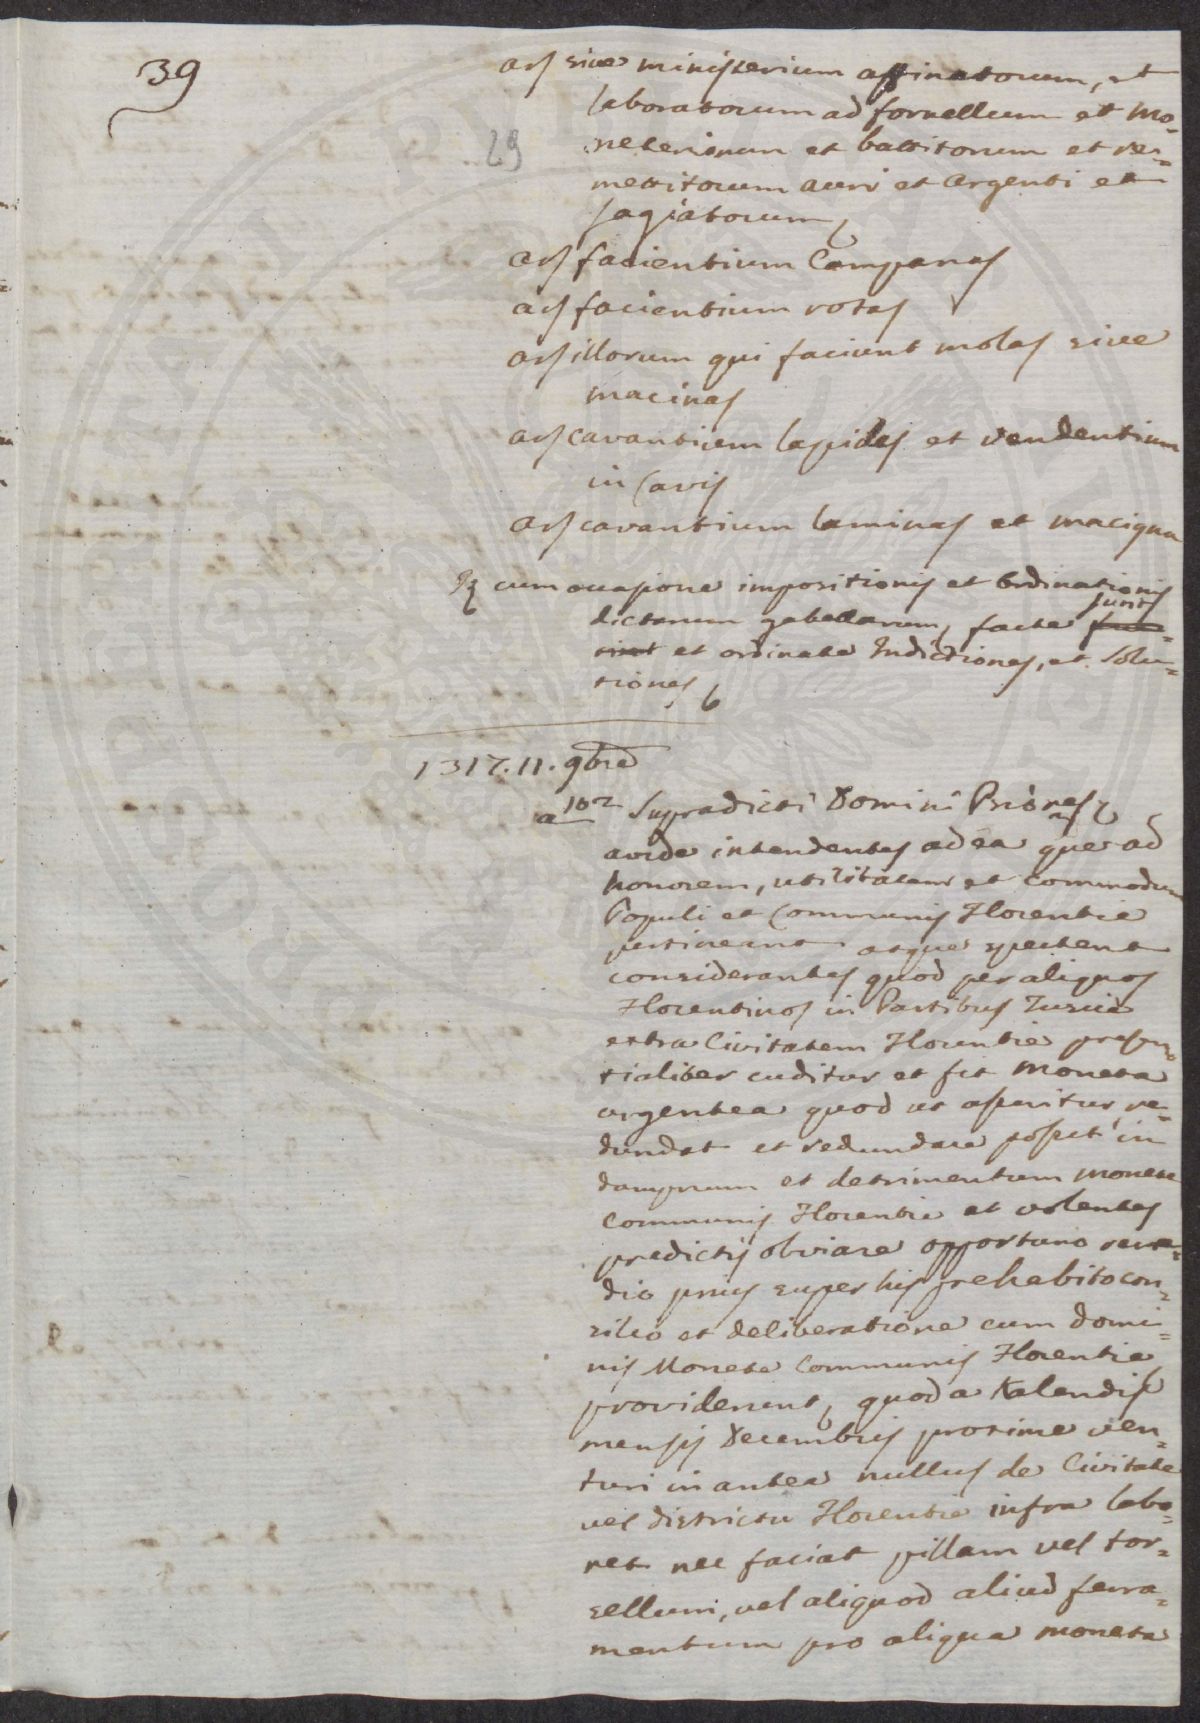 39
29
ars sive ministerium affinatorum, et
laboratorum ad fornellum et mo-
neteriorum et battitorum et re-
mettitorum auri et argenti et
sagiatorum,
ars facientium Campanas
ars facientium rotas
ars illorum qui faciunt molas sive
macinas
ars cavantium lapides et vendentium
in Cavis
ars cavantium laminas et macigna
cum occasione impositionis et ordinationis
dictarum gabellarum, facte fue-
sunt
rint et ordinate Indictiones, et Solu-
tiones,
1317. 11. 9bre
a 102 Supradicti Domini Priores
avide intendentes ad ea que ad
honorem, utilitatem et commodum
Populi et Communis Florentie
pertineant atque spectent
considerantes quod per aliquos
Florentinos in Partibus Tuscie
extra Civitatem Florentie presen-
tialiter cuditur et fit moneta
argentea quod ut asseritur re-
dundat et redundare posset in
dampnum et detrimentum monete
Communis Florentie et volentes
predictis obviare opportuno reme-
dio prius super his prehabito con-
silio et deliberatione cum domi-
nis Monete Communis Florentie
providerunt, quod a Kalendis
mensis Decembris proxime ven-
turi in antea nullus de Civitate
vel districtu Florentie infra labo-
ret nec faciat pillam vel tor-
sellum, vel aliquod aliud ferra-
mentum pro aliqua moneta